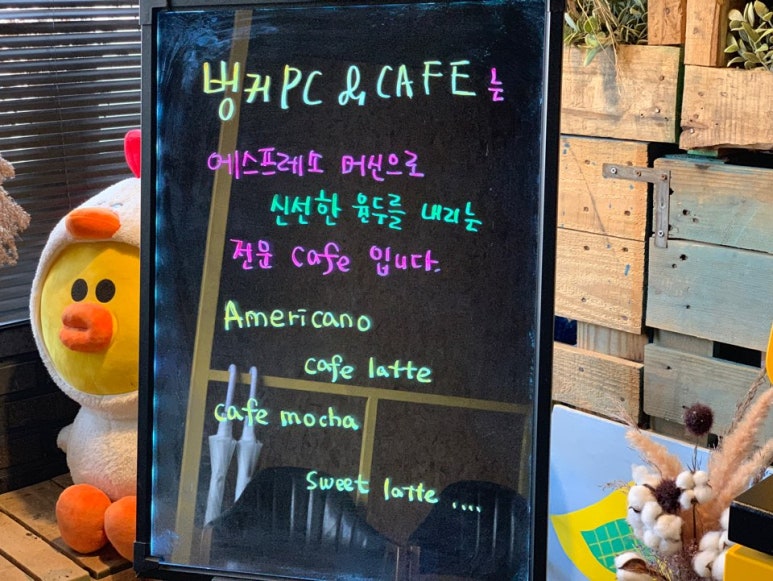 벙커PC & CAFE는
에스프레소 머신으로
신선한 원두를 내리는
전문 cafe 입니다.
Americano
cafe latte
cafe mocha
sweet latte ....